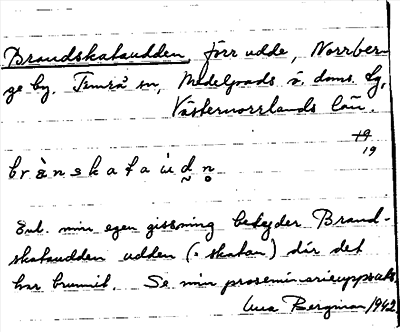 Brandskataudden, förr udde, Norrber-
ge by, Timrå sn, Medelpads ö. doms. tg,
Västernorrlands län.
19
19
brànskataùdn
Enl. min egen gissning betyder Brand-
skataudden udden (: skatan) där det
har brunnit. Se min proseminarieuppsats.
Bergman 1942